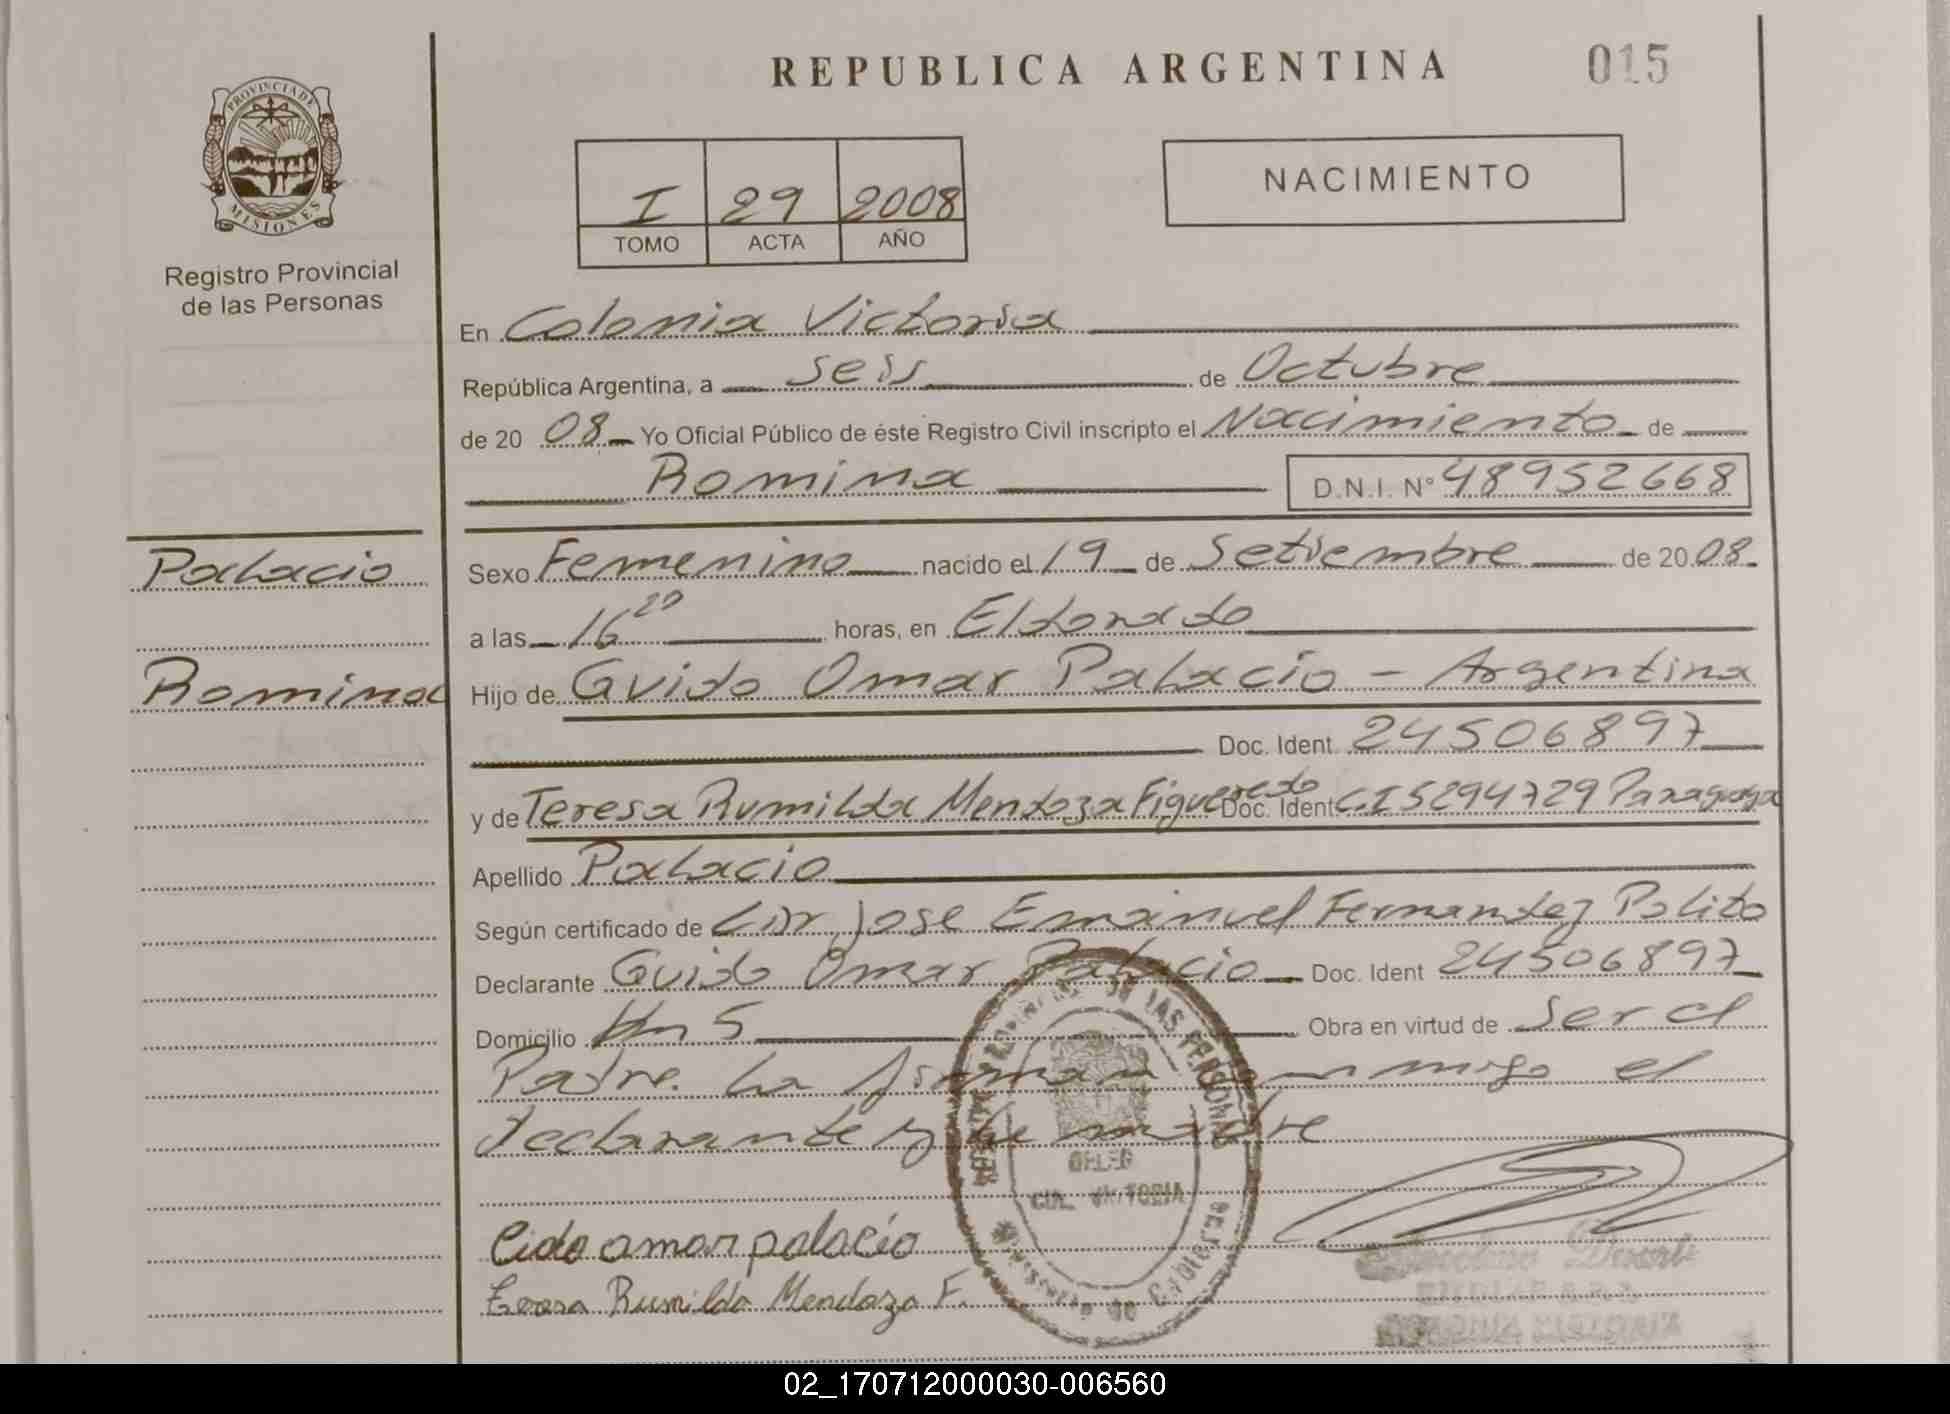 REPUBLICA ARGENTINA
015
PROVINCIA DE
MISIONES
Registro Provincial
de las Personas
I 29 2008
TOMO ACTA AÑO
NACIMIENTO
En Colonia Victoria
República Argentina, a seis de Octubre
de 20 08 Yo Oficial Público de éste Registro Civil inscripto el Nacimiento de
Romina D.N.I. N° 48952668
Palacio
Romina
Sexo Femenino nacido el 19 de Setiembre de 20 08
a las 16 20 horas, en Eldorado
Hijo de Guido Omar Palacio - Argentina
Doc. Ident. 24506897
y de Teresa Rumilda Mendoza Figueredo Doc. Ident C.I 5294729 Paraguaya
Apellido Palacio
Según certificado de Jose Emanuel Fernandez Polito
Declarante Guido Omar Palacio Doc. Ident 24506897
Domicilio Km 5 Obra en virtud de Ser el
Padre. La firman conmigo el
declarante y la madre
DE LAS PERSONAS
DELEG
COL. VICTORIA
Cido omar palacio
Teresa Rumilda Mendoza F.
02_170712000030-006560